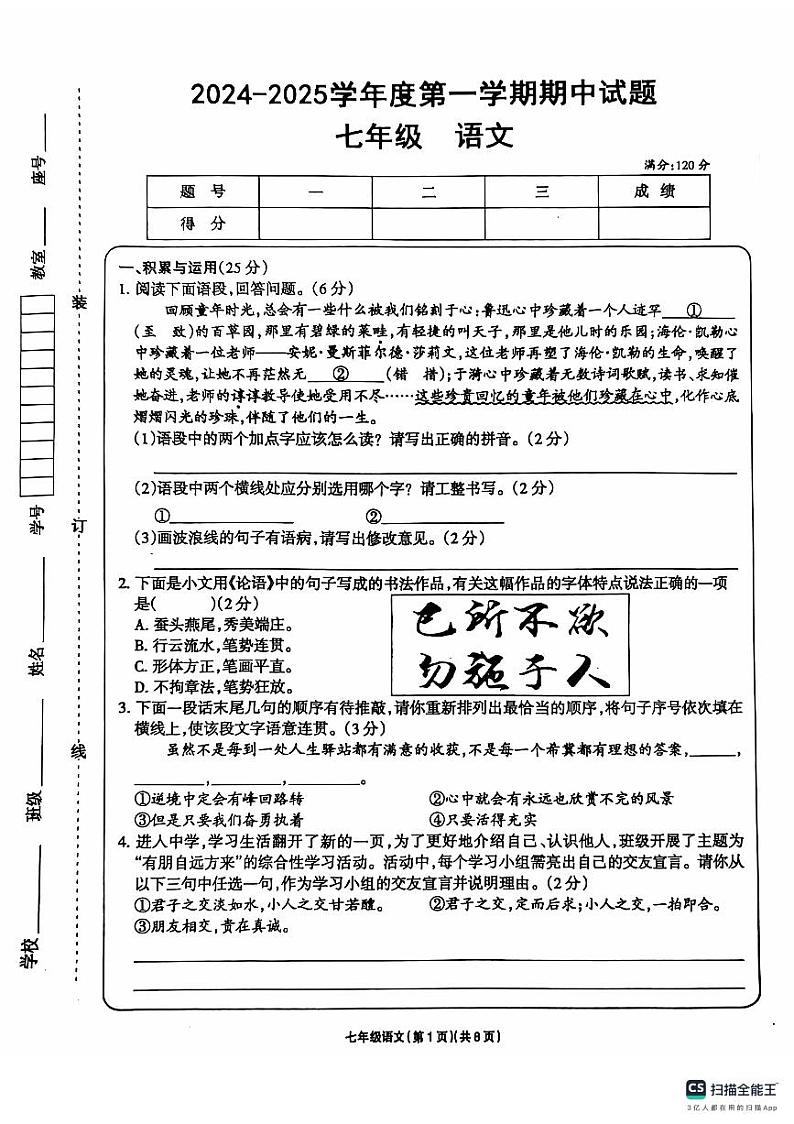 2024-2025学年度第一学期期中试题
七年级 语文
满分:120分
题 号 一 二 三 成 绩
得 分
一、积累与运用(25分)
1. 阅读下面语段,回答问题。(6分)
回顾童年时光,总会有一些什么被我们铭刻于心:鲁迅心中珍藏着一个人迹罕 ①
(至 致)的百草园,那里有碧绿的菜畦,有轻捷的叫天子,那里是他儿时的乐园;海伦·凯勒心
中珍藏着一位老师——安妮·曼斯菲尔德·莎莉文,这位老师再塑了海伦·凯勒的生命,唤醒了
她的灵魂,让她不再茫然无 ② (错 措);于漪心中珍藏着无数诗词歌赋,读书、求知催
她奋进,老师的谆谆教导使她受用不尽……这些珍贵回忆的童年被他们珍藏在心中,化作心底
熠熠闪光的珍珠,伴随了他们的一生。
(1)语段中的两个加点字应该怎么读? 请写出正确的拼音。(2分)
(2)语段中两个横线处应分别选用哪个字? 请工整书写。(2分)
① ②
(3)画波浪线的句子有语病,请写出修改意见。(2分)
2. 下面是小文用《论语》中的句子写成的书法作品,有关这幅作品的字体特点说法正确的一项
是( )(2分)
A. 蚕头燕尾,秀美端庄。
B. 行云流水,笔势连贯。
C. 形体方正,笔画平直。
D. 不拘章法,笔势狂放。
己所不欲
勿施于人
3. 下面一段话末尾几句的顺序有待推敲,请你重新排列出最恰当的顺序,将句子序号依次填在
横线上,使该段文字语意连贯。(3分)
虽然不是每到一处人生驿站都有满意的收获,不是每一个希冀都有理想的答案,______,
______,______,______。
①逆境中定会有峰回路转 ②心中就会有永远也欣赏不完的风景
③但是只要我们奋勇执着 ④只要活得充实
4. 进人中学,学习生活翻开了新的一页,为了更好地介绍自己、认识他人,班级开展了主题为
“有朋自远方来”的综合性学习活动。活动中,每个学习小组需亮出自己的交友宣言。请你从
以下三句中任选一句,作为学习小组的交友宣言并说明理由。(2分)
①君子之交淡如水,小人之交甘若醴。 ②君子之交,定而后求;小人之交,一拍即合。
③朋友相交,贵在真诚。
七年级语文(第1页)(共8页)
学校 班级 姓名 学号 教室 座号
装 订 线
CS 扫描全能王
3亿人都在用的扫描App